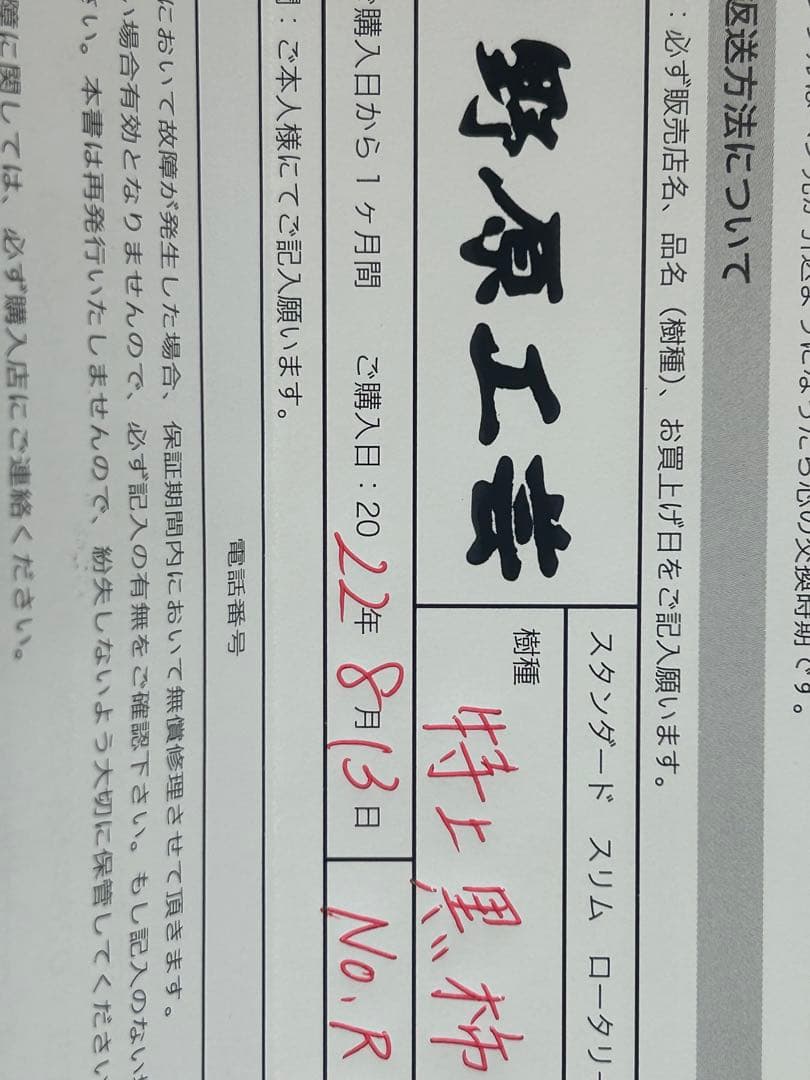 返送方法について
：必ず販売店名、品名（樹種）、お買上げ日をご記入願います。
スタンダード スリム ロータリー
野原工芸
樹種
特上黒柿
ご購入日から1ヶ月間 ご購入日：2022年8月13日
No. R
：ご本人様にてご記入願います。
電話番号
において故障が発生した場合、保証期間内において無償修理させて頂きます。
い場合有効となりませんので、必ず記入の有無をご確認下さい。もし記入のない
さい。本書は再発行いたしませんので、紛失しないよう大切に保管してください
障に関しては、必ず購入店にご連絡ください。